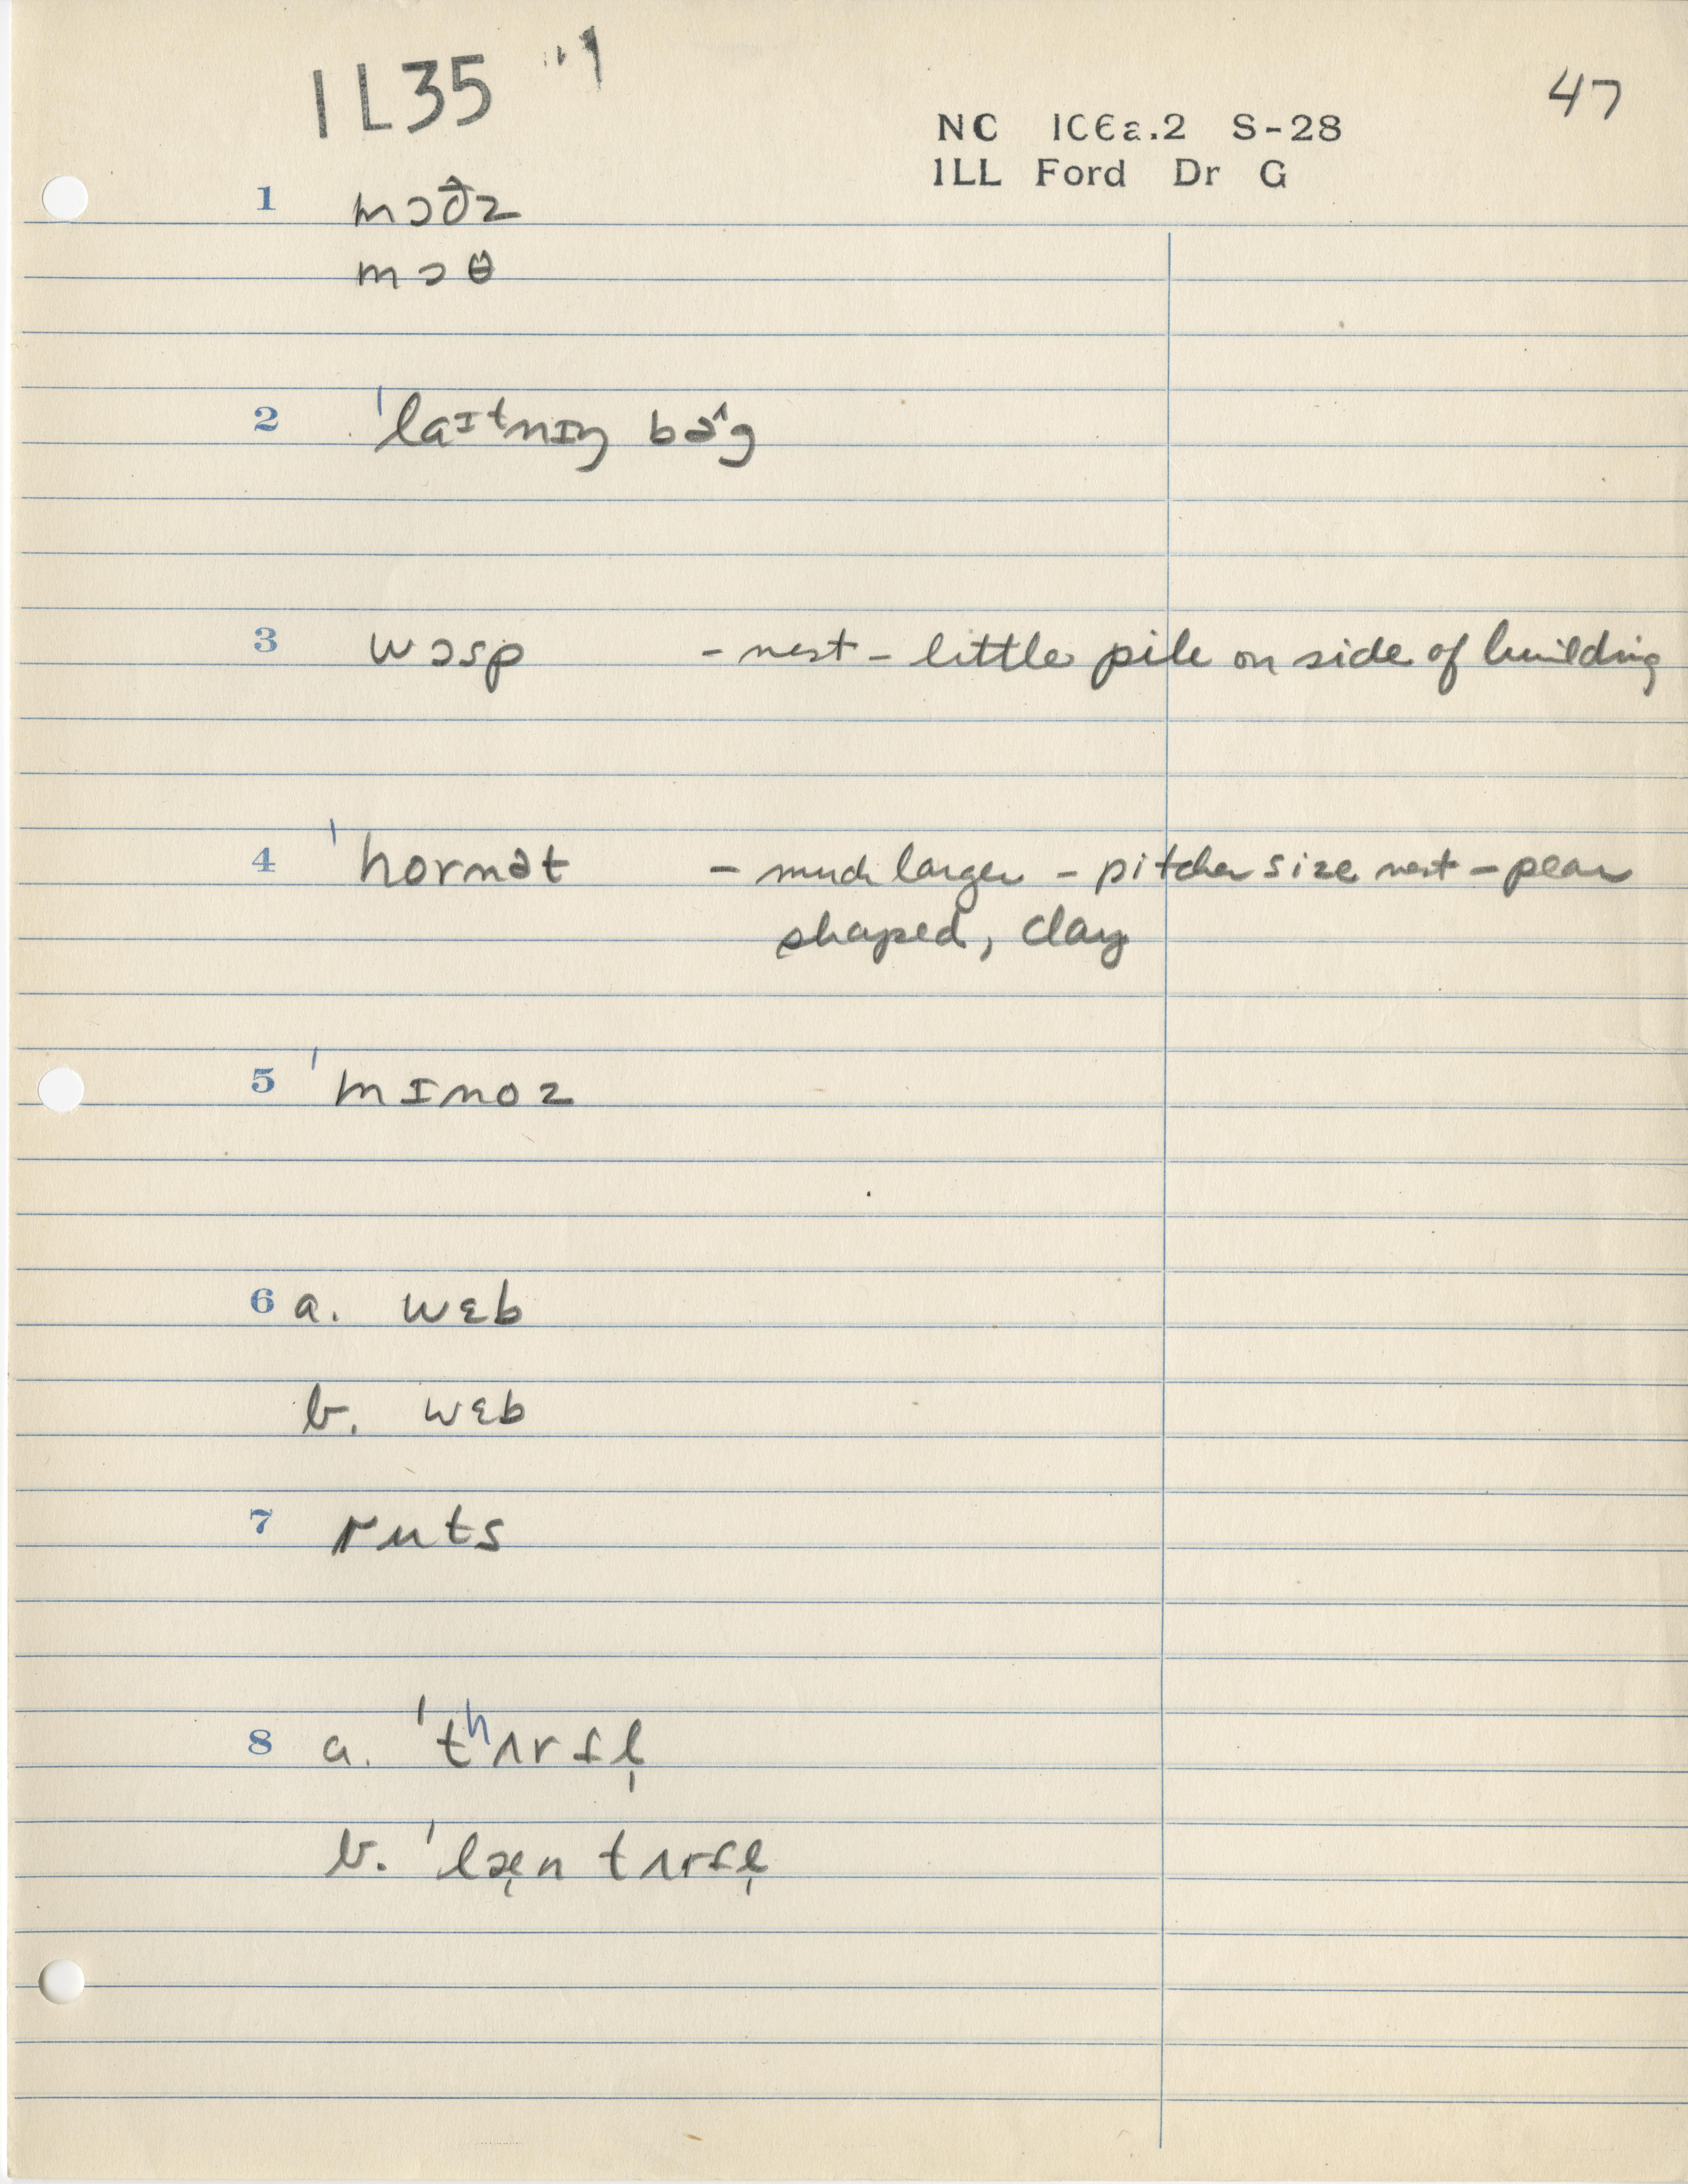 1L35
47
NC 1C6a.2 S-28
1LL Ford Dr G
1 mɔðz
mɔθ
2 ˈlaɪtnɪŋ bə^g
3 wɔsp - nest - little pile on side of building
4 ˈhornət - much larger - pitcher size nest - pear
shaped, clay
5 ˈmɪnoz
6 a. wɛb
b. wɛb
7 ruts
8 a. ˈtʰʌrtl̩
b. ˈlæ̩n tʌrtl̩